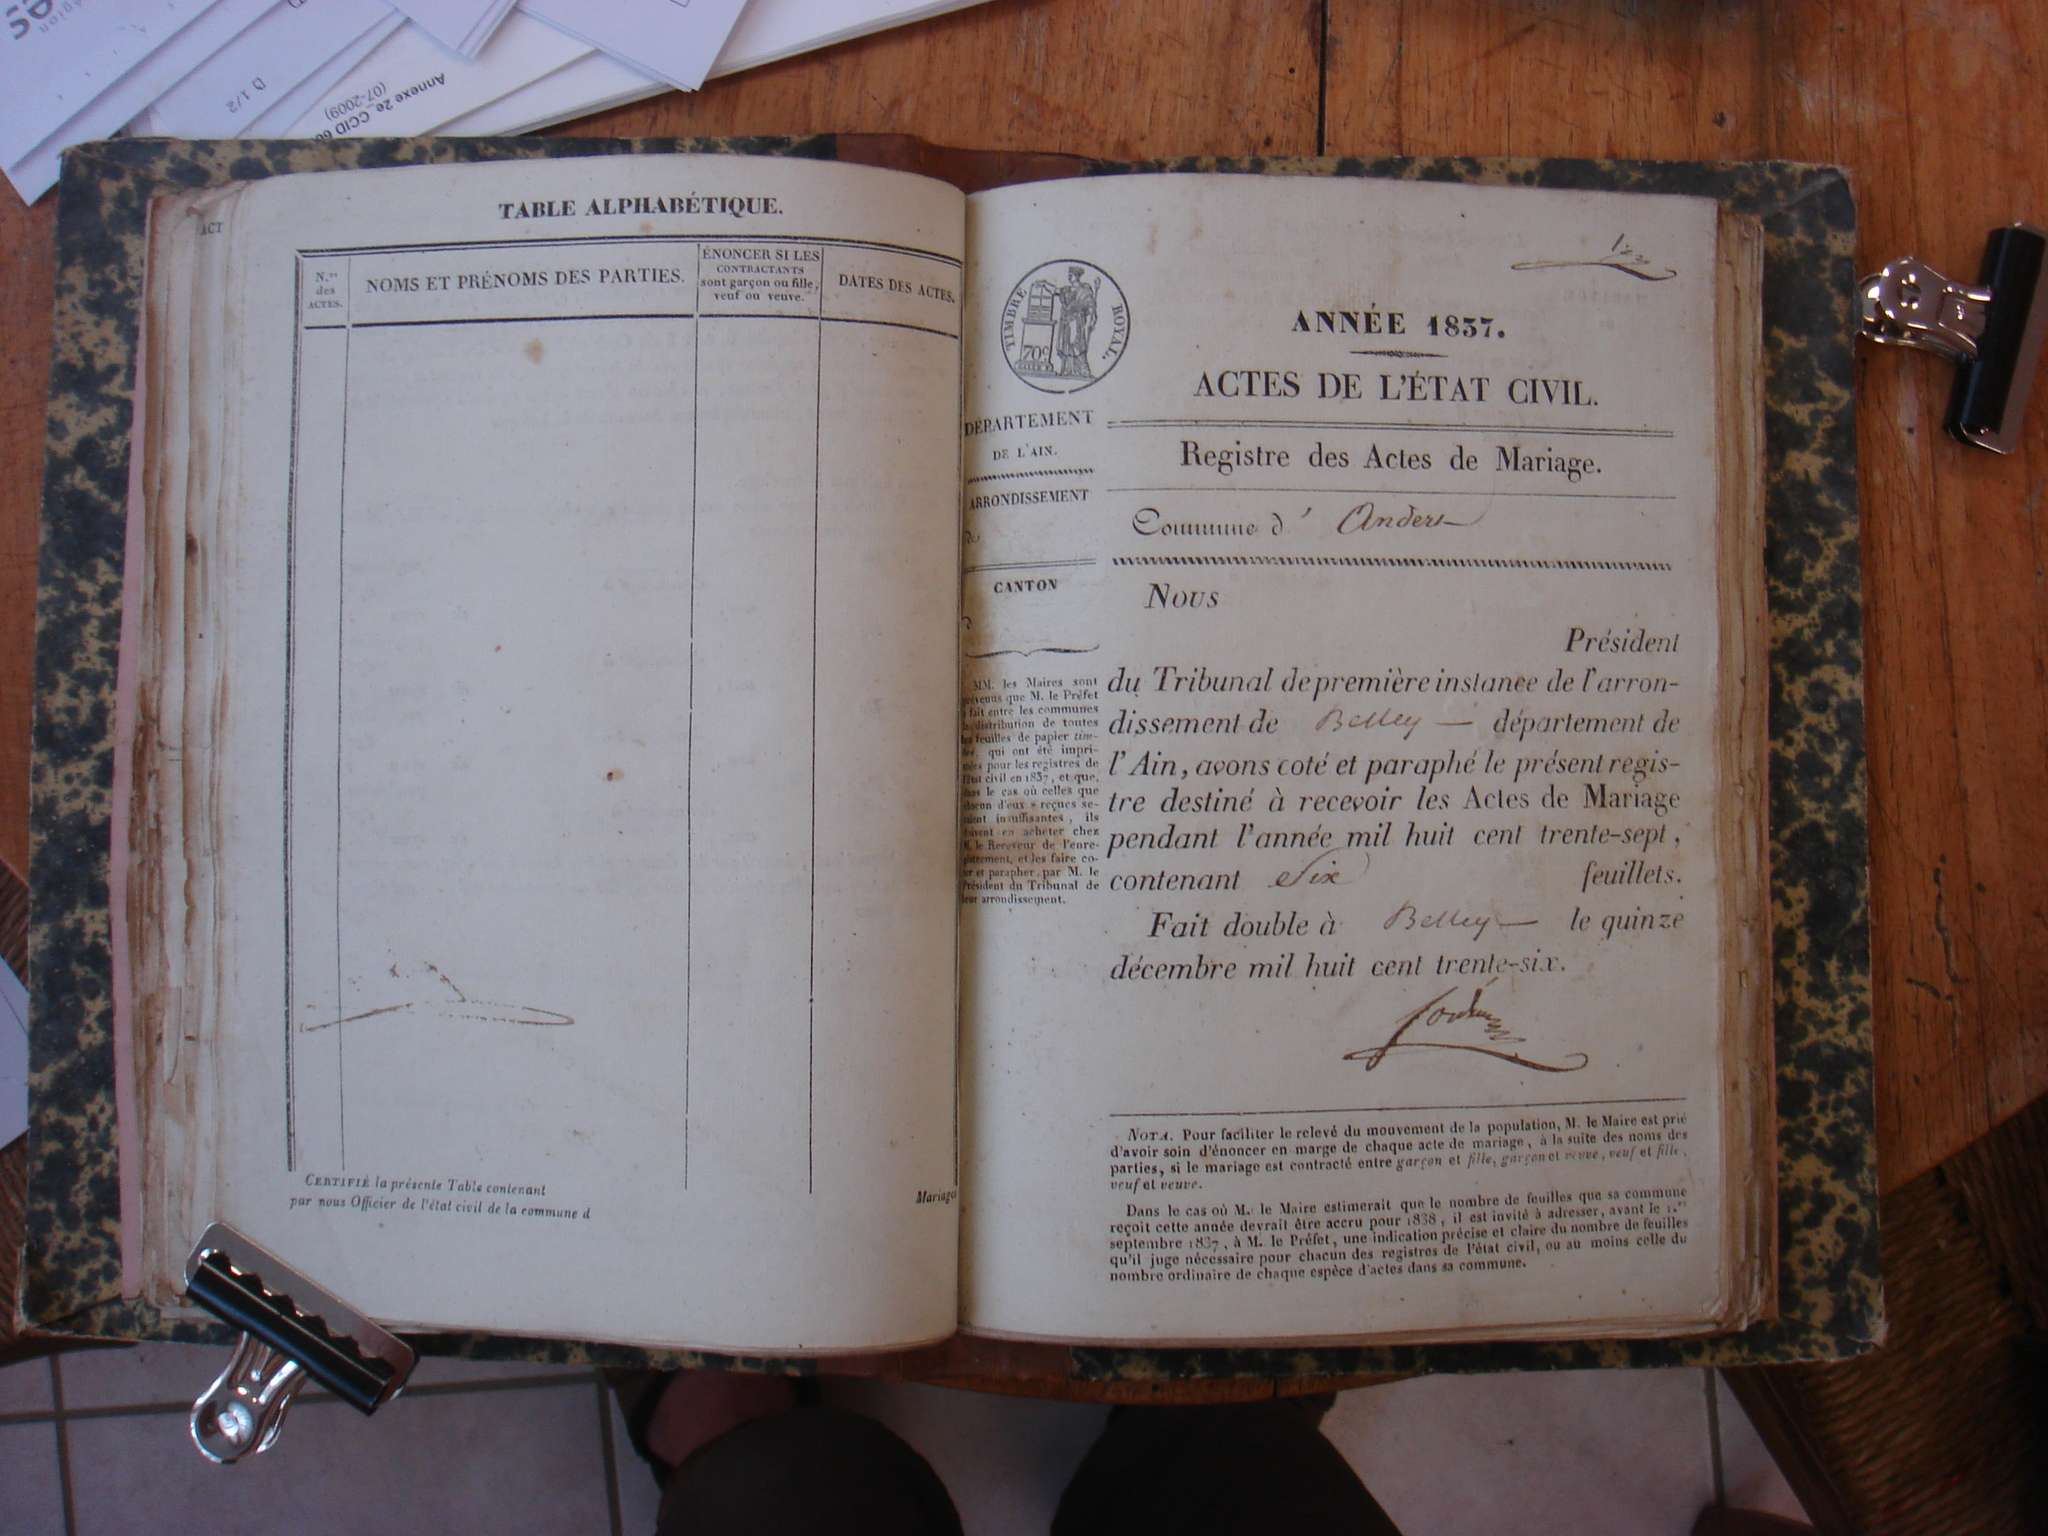 D 1/2
Annexe 2e_CCID 60
(07-2009)
ACT
TABLE ALPHABÉTIQUE.
N.os
des
ACTES.
NOMS ET PRÉNOMS DES PARTIES.
ÉNONCER SI LES
CONTRACTANTS
sont garçon ou fille,
veuf ou veuve.
DATES DES ACTES.
CERTIFIÉ la présente Table contenant
par nous Officier de l'état civil de la commune d
Mariages
TIMBRE ROYAL.
70c
DÉPARTEMENT
DE L'AIN.
ARRONDISSEMENT
de
CANTON
d
MM. les Maires sont
prévenus que M. le Préfet
a fait entre les communes
la distribution de toutes
les feuilles de papier tim-
bré, qui ont été impri-
mées pour les registres de
l'état civil en 1837, et que,
dans le cas où celles que
chacun d'eux a reçues se-
raient insuffisantes, ils
doivent en acheter chez
M. le Receveur de l'enre-
gistrement, et les faire co-
ter et parapher par M. le
Président du Tribunal de
leur arrondissement.
ANNÉE 1837.
ACTES DE L'ÉTAT CIVIL.
Registre des Actes de Mariage.
Commune d' Andert
Nous
Président
du Tribunal de première instance de l'arron-
dissement de Belley département de
l'Ain, avons coté et paraphé le présent regis-
tre destiné à recevoir les Actes de Mariage
pendant l'année mil huit cent trente-sept,
contenant Six feuillets.
Fait double à Belley le quinze
décembre mil huit cent trente-six.
NOTA. Pour faciliter le relevé du mouvement de la population, M. le Maire est prié
d'avoir soin d'énoncer en marge de chaque acte de mariage, à la suite des noms des
parties, si le mariage est contracté entre garçon et fille, garçon et veuve, veuf et fille,
veuf et veuve.
Dans le cas où M. le Maire estimerait que le nombre de feuilles que sa commune
reçoit cette année devrait être accru pour 1838, il est invité à adresser, avant le 1.er
septembre 1837, à M. le Préfet, une indication précise et claire du nombre de feuilles
qu'il juge nécessaire pour chacun des registres de l'état civil, ou au moins celle du
nombre ordinaire de chaque espèce d'actes dans sa commune.